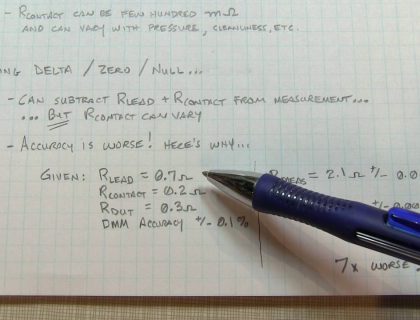 - RCONTACT CAN BE FEW HUNDRED mΩ
AND CAN VARY WITH PRESSURE, CLEANLINESS, ETC.
DELTA / ZERO / NULL...
- CAN SUBTRACT RLEAD + RCONTACT FROM MEASUREMENT...
... BUT RCONTACT CAN VARY
- ACCURACY IS WORSE! HERE'S WHY...
GIVEN: RLEAD = 0.7Ω
RCONTACT = 0.2Ω
RDUT = 0.3Ω
DMM ACCURACY +/- 0.1%
= 2.1Ω +/- 0.0
+/- 0.00
7x WORSE